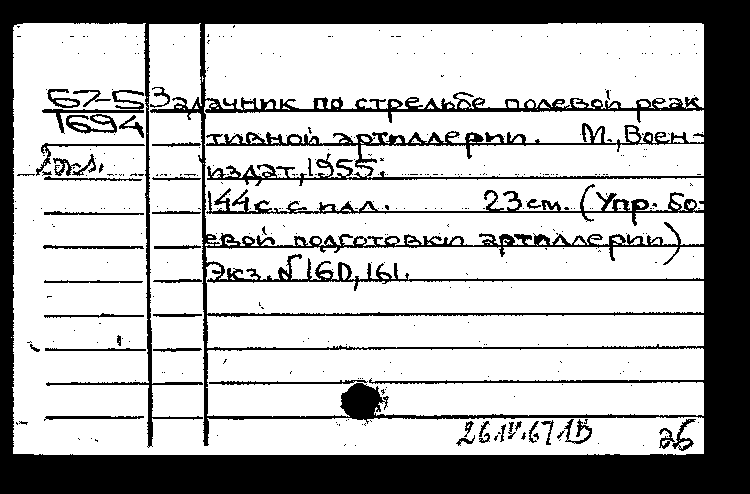 67-5 Задачник по стрельбе полевой реак
1694 тивной артиллерии. М., Воен-
2 экз. издат, 1955.
144 с. с илл. 23 см. (Упр. Бо-
евой подготовки артиллерии)
Экз. № 160, 161.
26.IV.67 1В аб